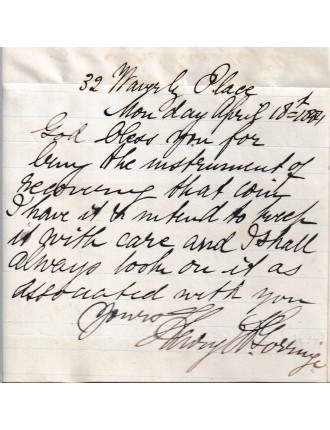 32 Waverly Place
Monday April 18th 1881
God bless you for
being the instrument of
recovering that coin
I have it & intend to keep
it with care and I shall
always look on it as
associated with you
Yours
Henry H Gorringe